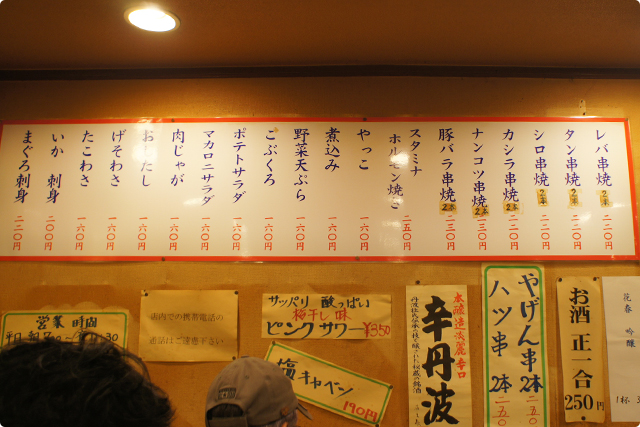 レバ串焼 2本 二二〇円
タン串焼 2本 二二〇円
シロ串焼 2本 二二〇円
カシラ串焼 2本 二二〇円
ナンコツ串焼 2本 二三〇円
豚バラ串焼 2本 二三〇円
スタミナ
ホルモン焼き 二五〇円
やっこ 一六〇円
煮込み 一六〇円
野菜天ぷら 一六〇円
ごぶくろ 一六〇円
ポテトサラダ 一六〇円
マカロニサラダ 一六〇円
肉じゃが 一六〇円
おひたし 一六〇円
げそわさ 一六〇円
たこわさ 一六〇円
いか刺身 二〇〇円
まぐろ刺身 二二〇円
営業時間
店内での携帯電話の
通話はご遠慮下さい
サッパリ 酸っぱい
梅干し味
ピンクサワー ¥350
塩キャベツ
190円
本醸造淡麗辛口
辛丹波
やげん串 2本 二五〇
ハツ串 2本 二五〇
お酒 正一合
250円
花春 吟醸
1杯